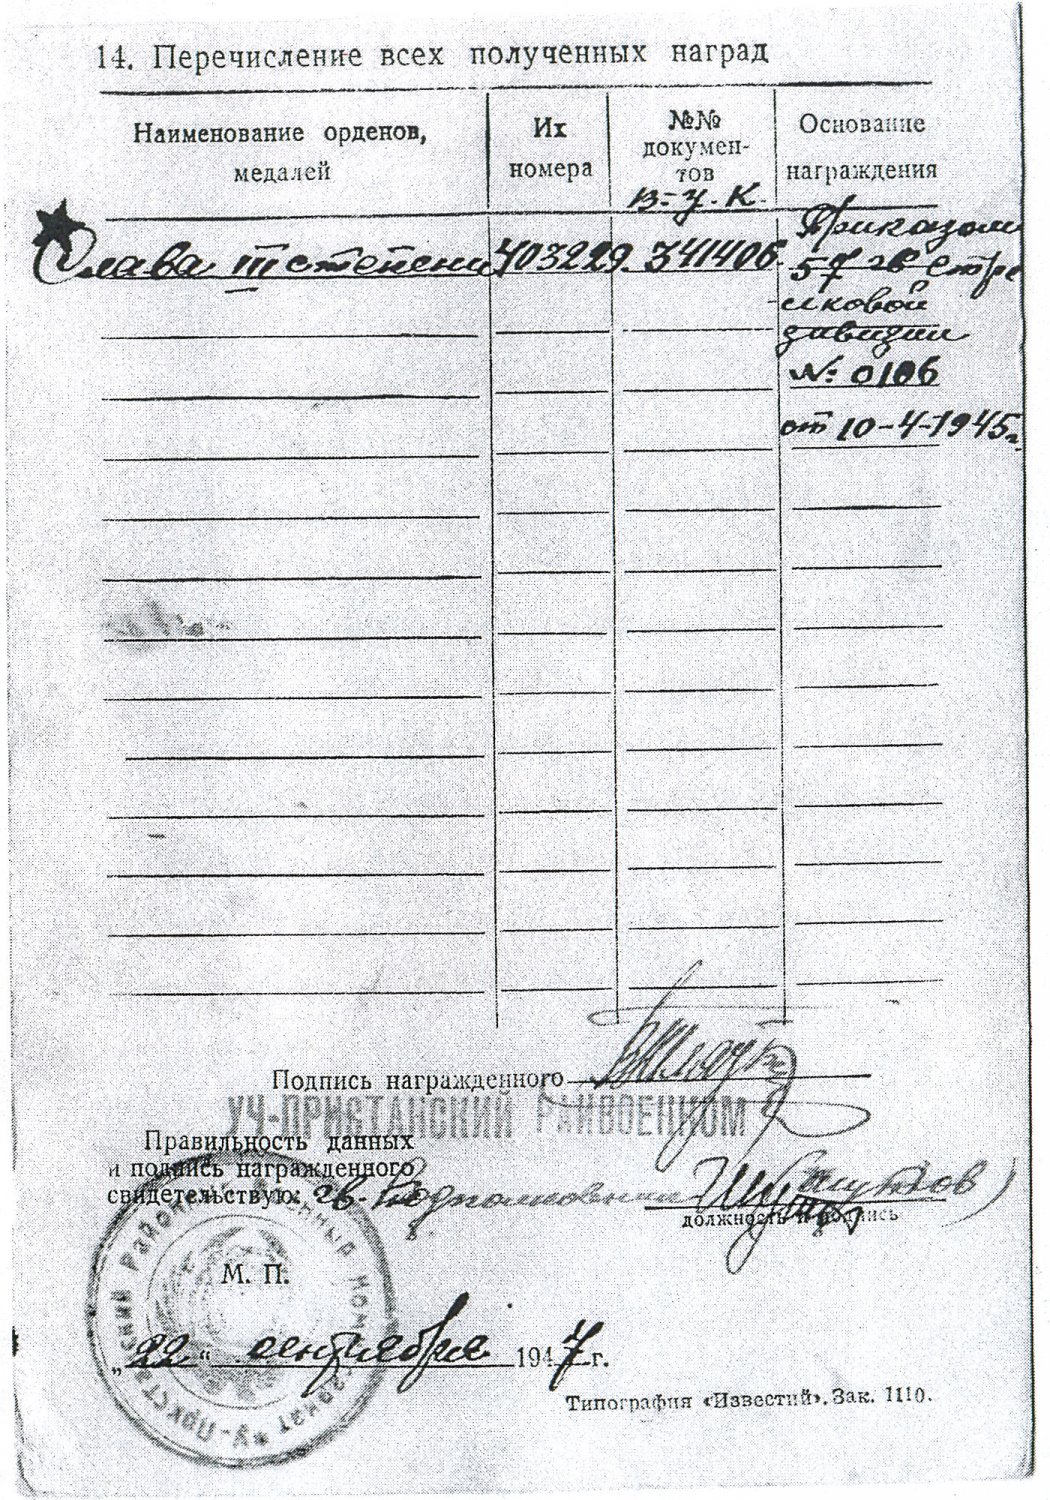 14. Перечисление всех полученных наград
Наименование орденов,
медалей
Их
номера
№№
докумен-
тов
в-у. к.
Основание
награждения
Слава III степени 403229. 341406.
Приказом
57 гв стре
лковой
дивизии
№: 0106
от 10-4-1945г.
Подпись награжденного
УЧ-ПРИСТАНСКИЙ РАЙВОЕНКОМ
Правильность данных
и подпись награжденного
свидетельствую: гв. Подполковник
должность и подпись
М. П.
„22“ сентября 1947 г.
Типография «Известий». Зак. 1110.